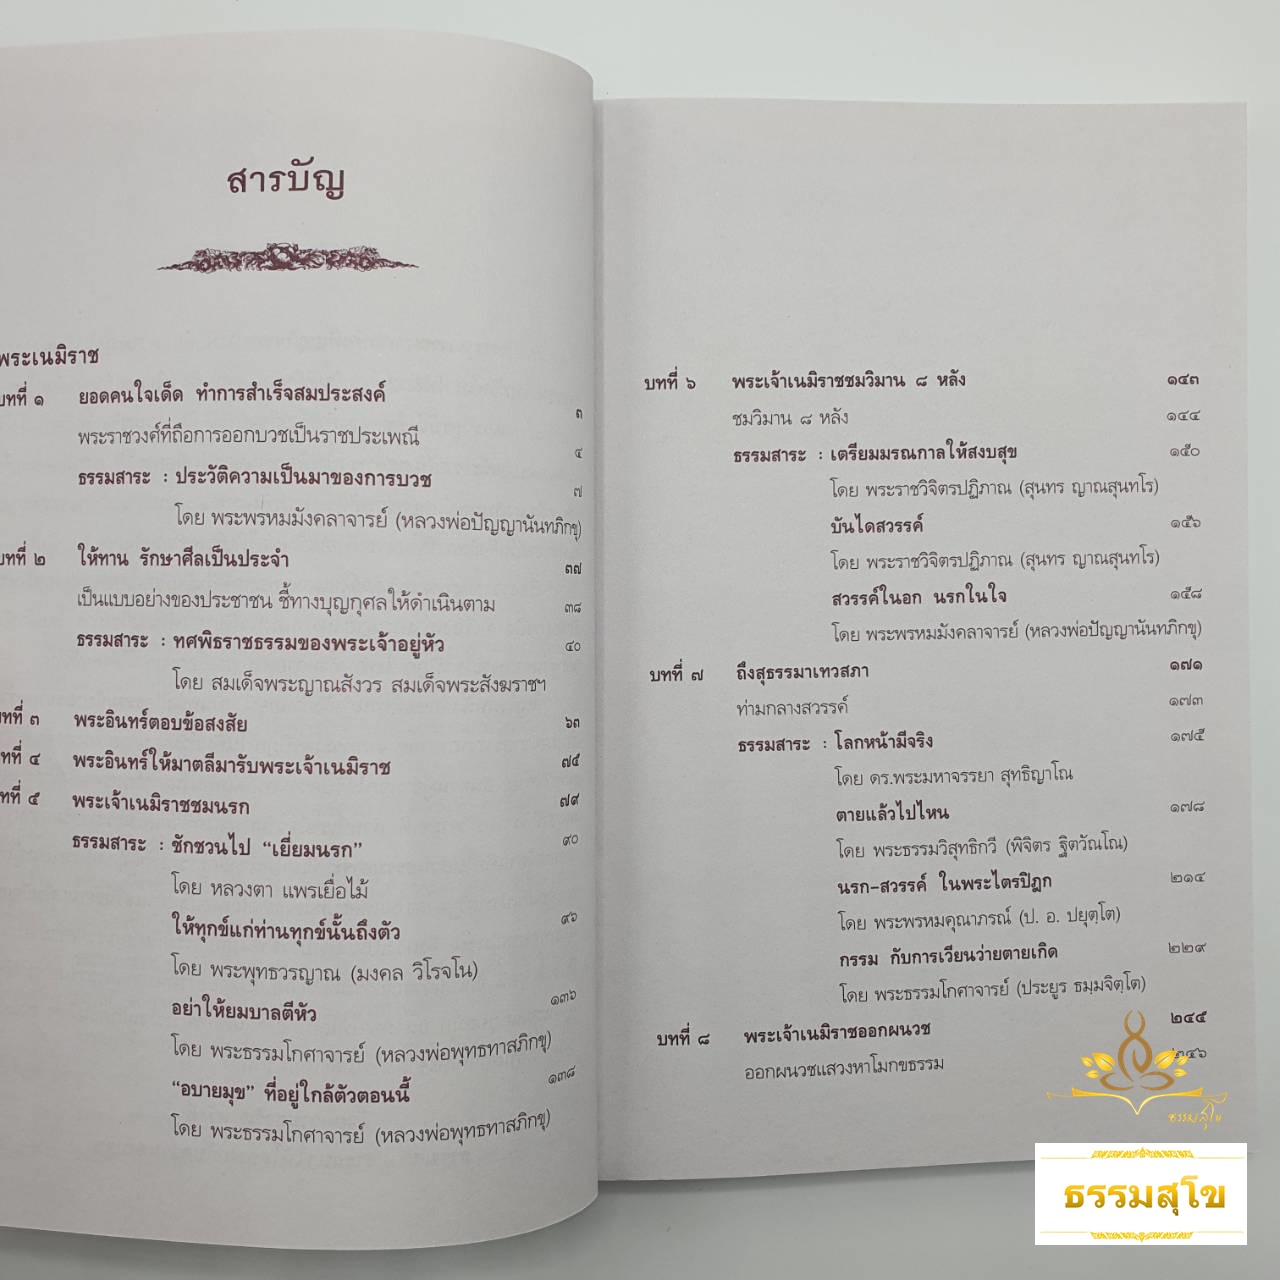 สารบัญ
พระเนมิราช
บทที่ ๑ ยอดคนใจเด็ด ทำการสำเร็จสมประสงค์ ๓
พระราชวงศ์ที่ถือการออกบวชเป็นราชประเพณี ๔
ธรรมสาระ : ประวัติความเป็นมาของการบวช ๗
โดย พระพรหมมังคลาจารย์ (หลวงพ่อปัญญานันทภิกขุ)
บทที่ ๒ ให้ทาน รักษาศีลเป็นประจำ ๓๗
เป็นแบบอย่างของประชาชน ชี้ทางบุญกุศลให้ดำเนินตาม ๓๘
ธรรมสาระ : ทศพิธราชธรรมของพระเจ้าอยู่หัว ๔๐
โดย สมเด็จพระญาณสังวร สมเด็จพระสังฆราชฯ
บทที่ ๓ พระอินทร์ตอบข้อสงสัย ๖๓
บทที่ ๔ พระอินทร์ให้มาตลีมารับพระเจ้าเนมิราช ๗๕
บทที่ ๕ พระเจ้าเนมิราชชมนรก ๗๙
ธรรมสาระ : ชักชวนไป “เยี่ยมนรก” ๙๐
โดย หลวงตา แพรเยื่อไม้
ให้ทุกข์แก่ท่านทุกข์นั้นถึงตัว ๙๖
โดย พระพุทธวรญาณ (มงคล วิโรจโน)
อย่าให้ยมบาลตีหัว ๑๓๖
โดย พระธรรมโกศาจารย์ (หลวงพ่อพุทธทาสภิกขุ)
“อบายมุข” ที่อยู่ใกล้ตัวตอนนี้ ๑๓๘
โดย พระธรรมโกศาจารย์ (หลวงพ่อพุทธทาสภิกขุ)
บทที่ ๖ พระเจ้าเนมิราชชมวิมาน ๘ หลัง ๑๔๓
ชมวิมาน ๘ หลัง ๑๔๔
ธรรมสาระ : เตรียมมรณกาลให้สงบสุข ๑๕๐
โดย พระราชวิจิตรปฏิภาณ (สุนทร ญาณสุนทโร)
บันไดสวรรค์ ๑๕๖
โดย พระราชวิจิตรปฏิภาณ (สุนทร ญาณสุนทโร)
สวรรค์ในอก นรกในใจ ๑๕๘
โดย พระพรหมมังคลาจารย์ (หลวงพ่อปัญญานันทภิกขุ)
บทที่ ๗ ถึงสุธรรมาเทวสภา ๑๗๑
ท่ามกลางสวรรค์ ๑๗๓
ธรรมสาระ : โลกหน้ามีจริง ๑๗๕
โดย ดร.พระมหาจรรยา สุทธิญาโณ
ตายแล้วไปไหน ๑๗๘
โดย พระธรรมวิสุทธิกวี (พิจิตร ฐิตวัณโณ)
นรก-สวรรค์ ในพระไตรปิฎก ๒๑๔
โดย พระพรหมคุณาภรณ์ (ป. อ. ปยุตฺโต)
กรรม กับการเวียนว่ายตายเกิด ๒๒๙
โดย พระธรรมโกศาจารย์ (ประยูร ธมฺมจิตฺโต)
บทที่ ๘ พระเจ้าเนมิราชออกผนวช ๒๔๕
ออกผนวชแสวงหาโมกขธรรม ๒๔๖
ธรรมสุโข
ธรรมสุโข